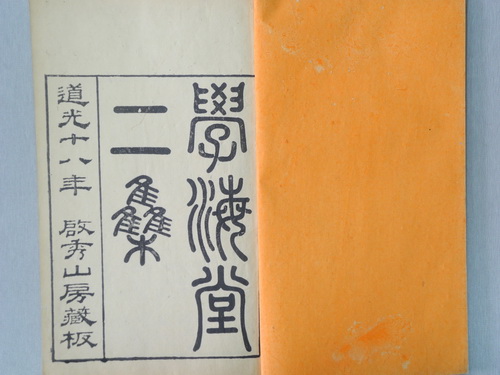 學海堂
二集
道光十八年 啟秀山房藏板